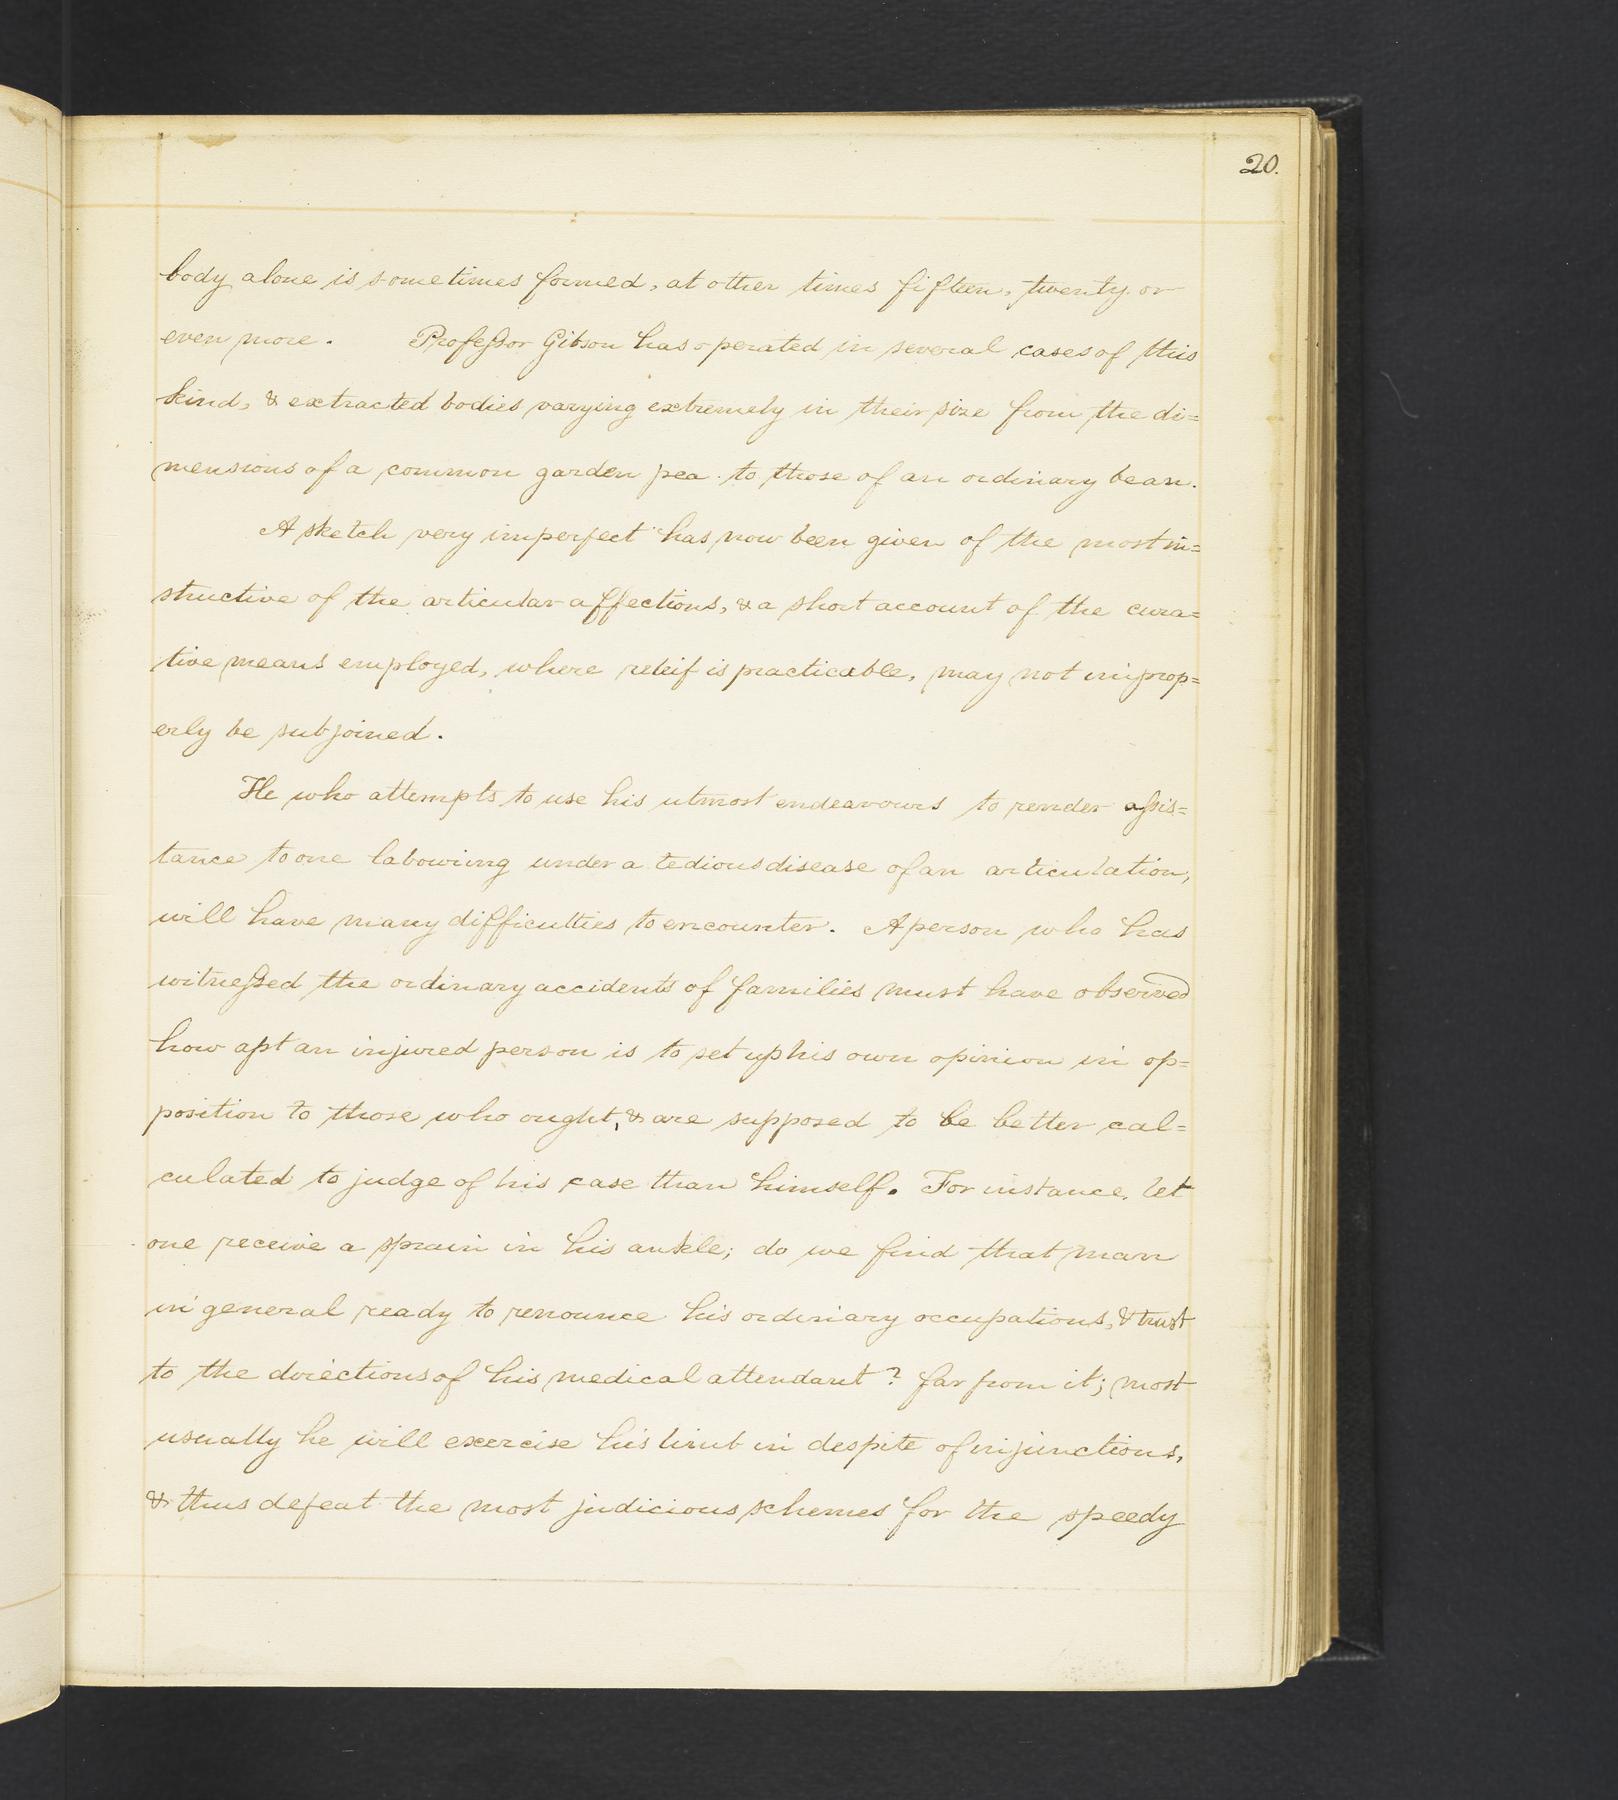 20.
body alone is sometimes formed, at other times fifteen, twenty or
even more. Profeſsor Gibson has operated in several cases of this
kind, & extracted bodies varying extremely in their size from the di=
mensions of a common garden pea to those of an ordinary bean.
A sketch very imperfect has now been given of the most in=
structive of the articular affections, & a short account of the cura=
tive means employed, where releif is practicable, may not improp=
erly be subjoined.
He who attempts to use his utmost endeavours to render aſsis=
tance to one labouring under a tedious disease of an articulation,
will have many difficulties to encounter. A person who has
witneſsed the ordinary accidents of families must have observed
how apt an injured person is to set up his own opinion in op=
position to those who ought, & are supposed to be better cal=
culated to judge of his case than himself. For instance, let
one receive a sprain in his ankle; do we find that man
in general ready to renounce his ordinary occupations, & trust
to the directions of his medical attendant? far from it; most
usually he will exercise his limb in despite of injunctions,
& thus defeat the most judicious schemes for the speedy